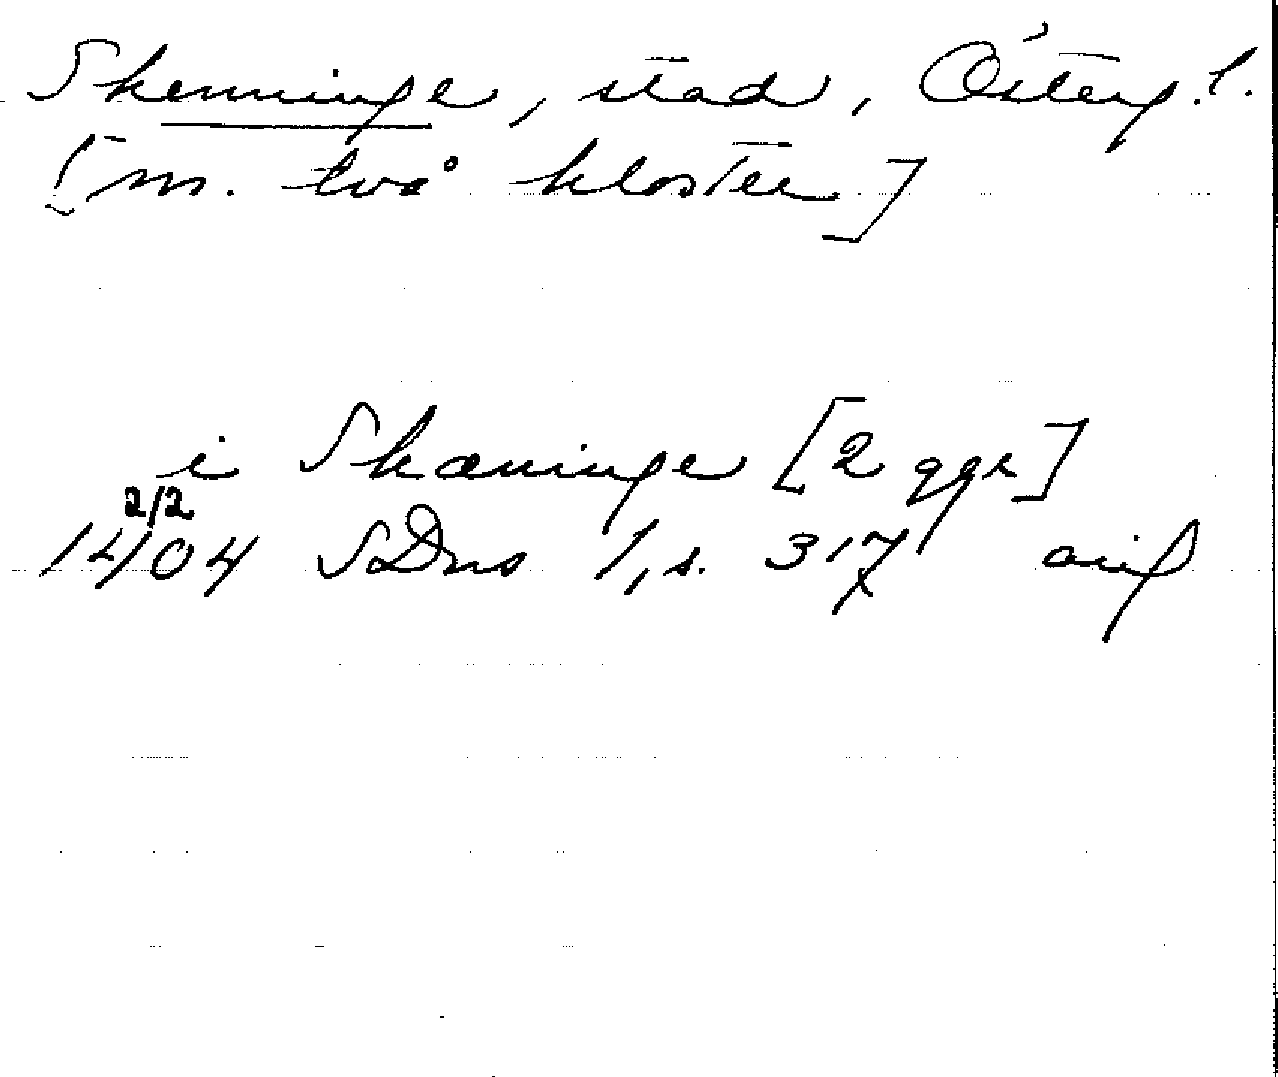 Skenninge, stad, Österg.l.
[m. två kloster]
i Skæninge [2 ggr]
2/2
1404 SDns 1, s. 317 avs